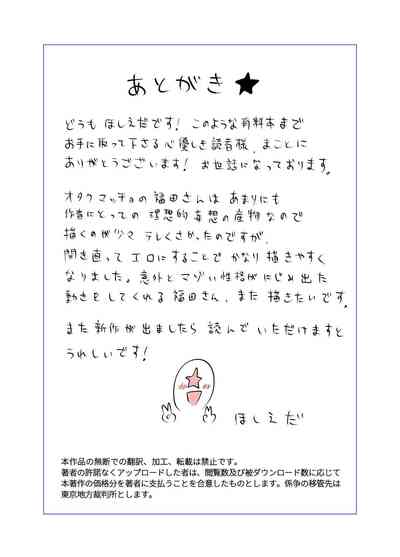 あとがき★
どうもほしえだです！このような有料本まで
お手に取って下さる心優しき読者様、まことに
ありがとうございます！お世話になっております。
オタクマッチョの福田さんは あまりにも
作者にとっての 理想的妄想の産物なので
描くのが少々テレくさかったのですが、
開き直ってエロにすることで かなり描きやすく
なりました。意外とマゾい性格がにじみ出た
動きをしてくれる福田さん、また描きたいです。
また新作が出ましたら 読んでいただけますと
うれしいです！
ほしえだ
本作品の無断での翻訳、加工、転載は禁止です。
著者の許諾なくアップロードした者は、閲覧数及び被ダウンロード数に応じて
本著作の価格分を著者に支払うことを合意したものとします。係争の移管先は
東京地方裁判所とします。